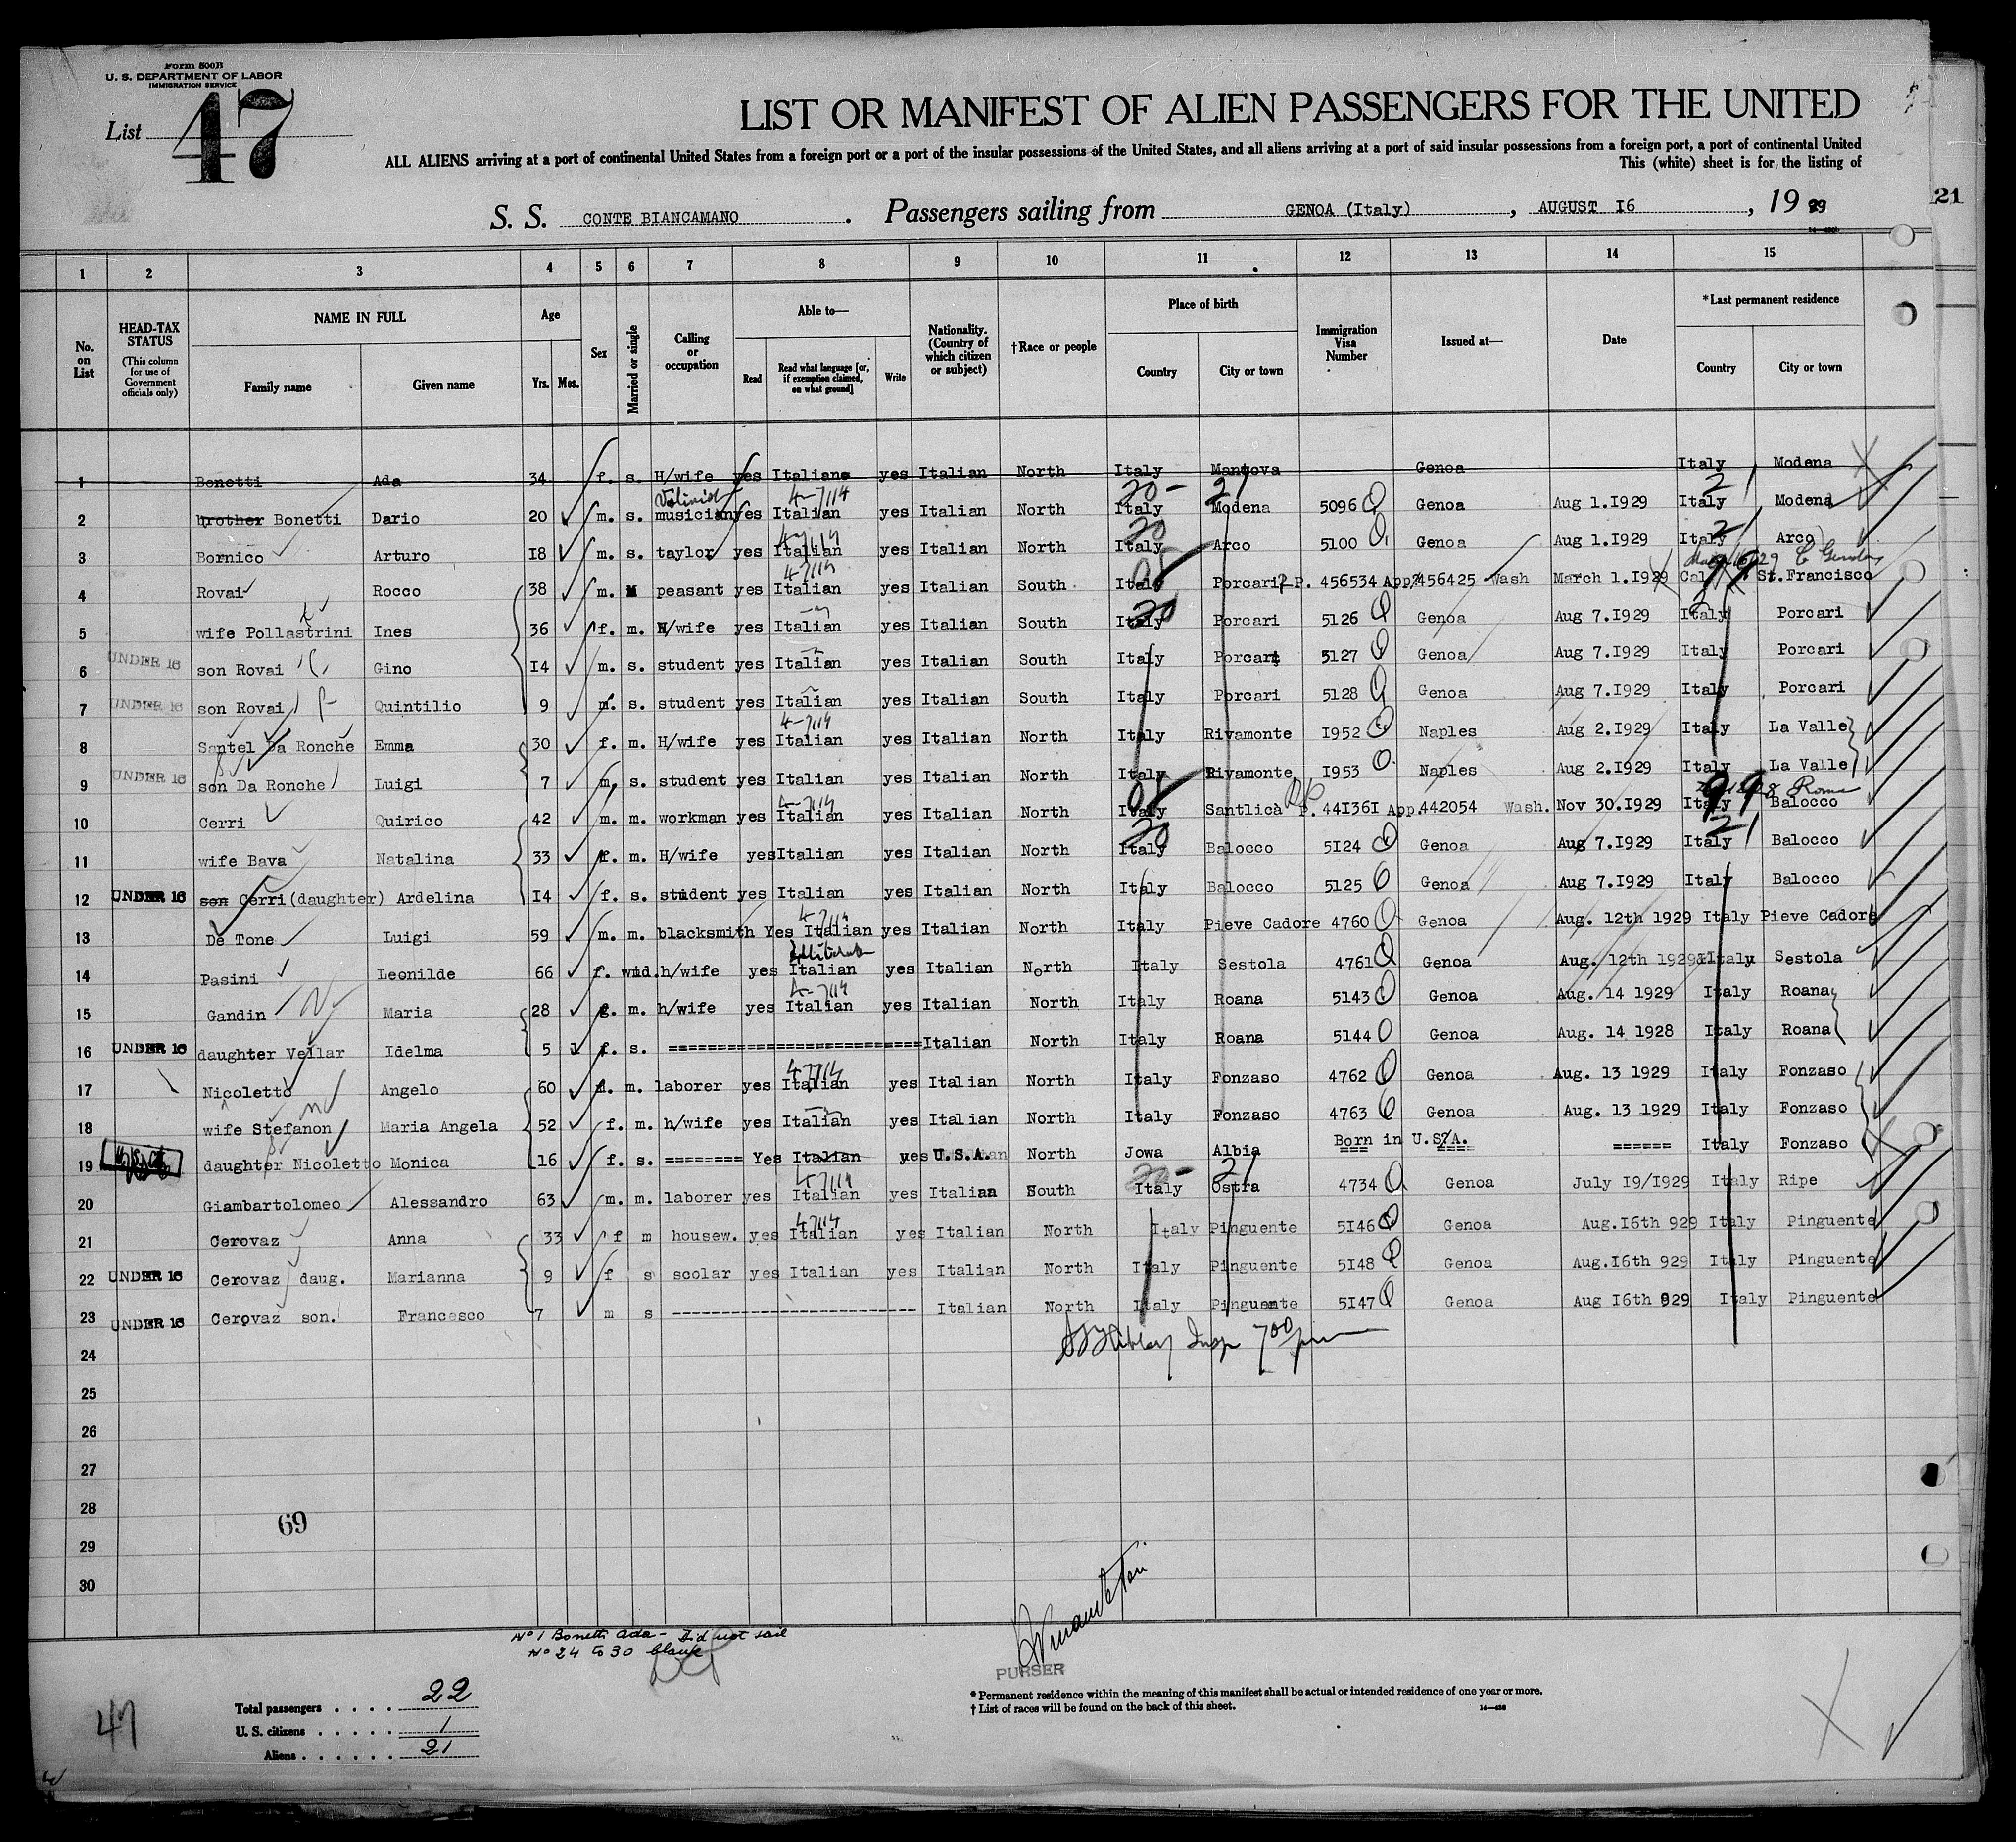 Form 500B
U. S. DEPARTMENT OF LABOR
IMMIGRATION SERVICE
List 47
LIST OR MANIFEST OF ALIEN PASSENGERS FOR THE UNITED
ALL ALIENS arriving at a port of continental United States from a foreign port or a port of the insular possessions of the United States, and all aliens arriving at a port of said insular possessions from a foreign port, a port of continental United
This (white) sheet is for the listing of
S. S. CONTE BIANCAMANO. Passengers sailing from GENOA (Italy), AUGUST I6, 1929
21
1 2 3 4 5 6 7 8 9 10 11 12 13 14 15
No. on List
HEAD-TAX STATUS (This column for use of Government officials only)
NAME IN FULL
Family name Given name
Age
Yrs. Mos.
Sex
Married or single
Calling or occupation
Able to—
Read Read what language [or, if exemption claimed, on what ground] Write
Nationality. (Country of which citizen or subject)
†Race or people
Place of birth
Country City or town
Immigration Visa Number
Issued at—
Date
*Last permanent residence
Country City or town
1 Bonetti Ada 34 f. s. H/wife yes Italiane yes Italian North Italy Mantova Genoa Italy Modena
2 brother Bonetti Dario 20 m. s. musician yes Italian yes Italian North Italy Modena 5096 Genoa Aug 1.I929 Italy Modena
3 Bornico Arturo I8 m. s. taylor yes Italian yes Italian North Italy Arco 5100 Genoa Aug 1.I929 Italy Arco
4 Rovai Rocco 38 m. M peasant yes Italian yes Italian South Italy Porcari P. 456534 App. 456425 Wash March 1.I929 Cal St.Francisco
5 wife Pollastrini Ines 36 f. m. H/wife yes Italian yes Italian South Italy Porcari 5126 Genoa Aug 7.I929 Italy Porcari
6 UNDER 16 son Rovai Gino I4 m. s. student yes Italian yes Italian South Italy Porcari 5127 Genoa Aug 7.I929 Italy Porcari
7 UNDER 16 son Rovai Quintilio 9 m. s. student yes Italian yes Italian South Italy Porcari 5128 Genoa Aug 7.I929 Italy Porcari
8 Santel Da Ronche Emma 30 f. m. H/wife yes Italian yes Italian North Italy Rivamonte I952 Naples Aug 2.I929 Italy La Valle
9 UNDER 16 son Da Ronche Luigi 7 m. s. student yes Italian yes Italian North Italy Rivamonte I953 Naples Aug 2.I929 Italy La Valle
10 Cerri Quirico 42 m. m. workman yes Italian yes Italian North Italy Santlicà P. 44I36I App. 442054 Wash. Nov 30.I929 Italy Balocco
11 wife Bava Natalina 33 f. m. H/wife yes Italian yes Italian North Italy Balocco 5I24 Genoa Aug 7.I929 Italy Balocco
12 UNDER 16 son Cerri (daughter) Ardelina I4 f. s. student yes Italian yes Italian North Italy Balocco 5125 Genoa Aug 7.I929 Italy Balocco
13 De Tone Luigi 59 m. m. blacksmith Yes Italian yes Italian North Italy Pieve Cadore 4760 Genoa Aug. 12th 1929 Italy Pieve Cadore
14 Pasini Leonilde 66 f. wid. h/wife yes Italian yes Italian North Italy Sestola 4761 Genoa Aug. 12th 1929 Italy Sestola
15 Gandin Maria 28 f. m. h/wife yes Italian yes Italian North Italy Roana 5143 Genoa Aug. 14 1929 Italy Roana
16 UNDER 16 daughter Vellar Idelma 5 f. s. ========================= Italian North Italy Roana 5144 Genoa Aug. 14 1928 Italy Roana
17 Nicoletto Angelo 60 m. laborer yes Italian yes Italian North Italy Fonzaso 4762 Genoa Aug. 13 1929 Italy Fonzaso
18 wife Stefanon Maria Angela 52 f. m. h/wife yes Italian yes Italian North Italy Fonzaso 4763 Genoa Aug. 13 1929 Italy Fonzaso
19 daughter Nicoletto Monica 16 f. s. ======== Yes Italian yes U.S.A. North Jowa Albia Born in U.S.A. ====== Italy Fonzaso
20 Giambartolomeo Alessandro 63 m. m. laborer yes Italian yes Italian South Italy Ostra 4734 Genoa July I9/I929 Italy Ripe
21 Cerovaz Anna 33 f m housew. yes Italian yes Italian North Italy Pinguente 5I46 Genoa Aug.I6th 929 Italy Pinguente
22 UNDER 16 Cerovaz daug. Marianna 9 f s scolar yes Italian yes Italian North Italy Pinguente 5I48 Genoa Aug.I6th 929 Italy Pinguente
23 UNDER 16 Cerovaz son. Francesco 7 m s -------------------------- Italian North Italy Pinguente 5I47 Genoa Aug I6th 929 Italy Pinguente
24
25
26
27
28
29
30
69
No 1 Bonetti Ada - Did not sail
No 24 to 30 blank
PURSER
Total passengers . . . . 22
U. S. citizens . . . . . 1
Aliens . . . . . . 21
47
* Permanent residence within the meaning of this manifest shall be actual or intended residence of one year or more.
† List of races will be found on the back of this sheet.